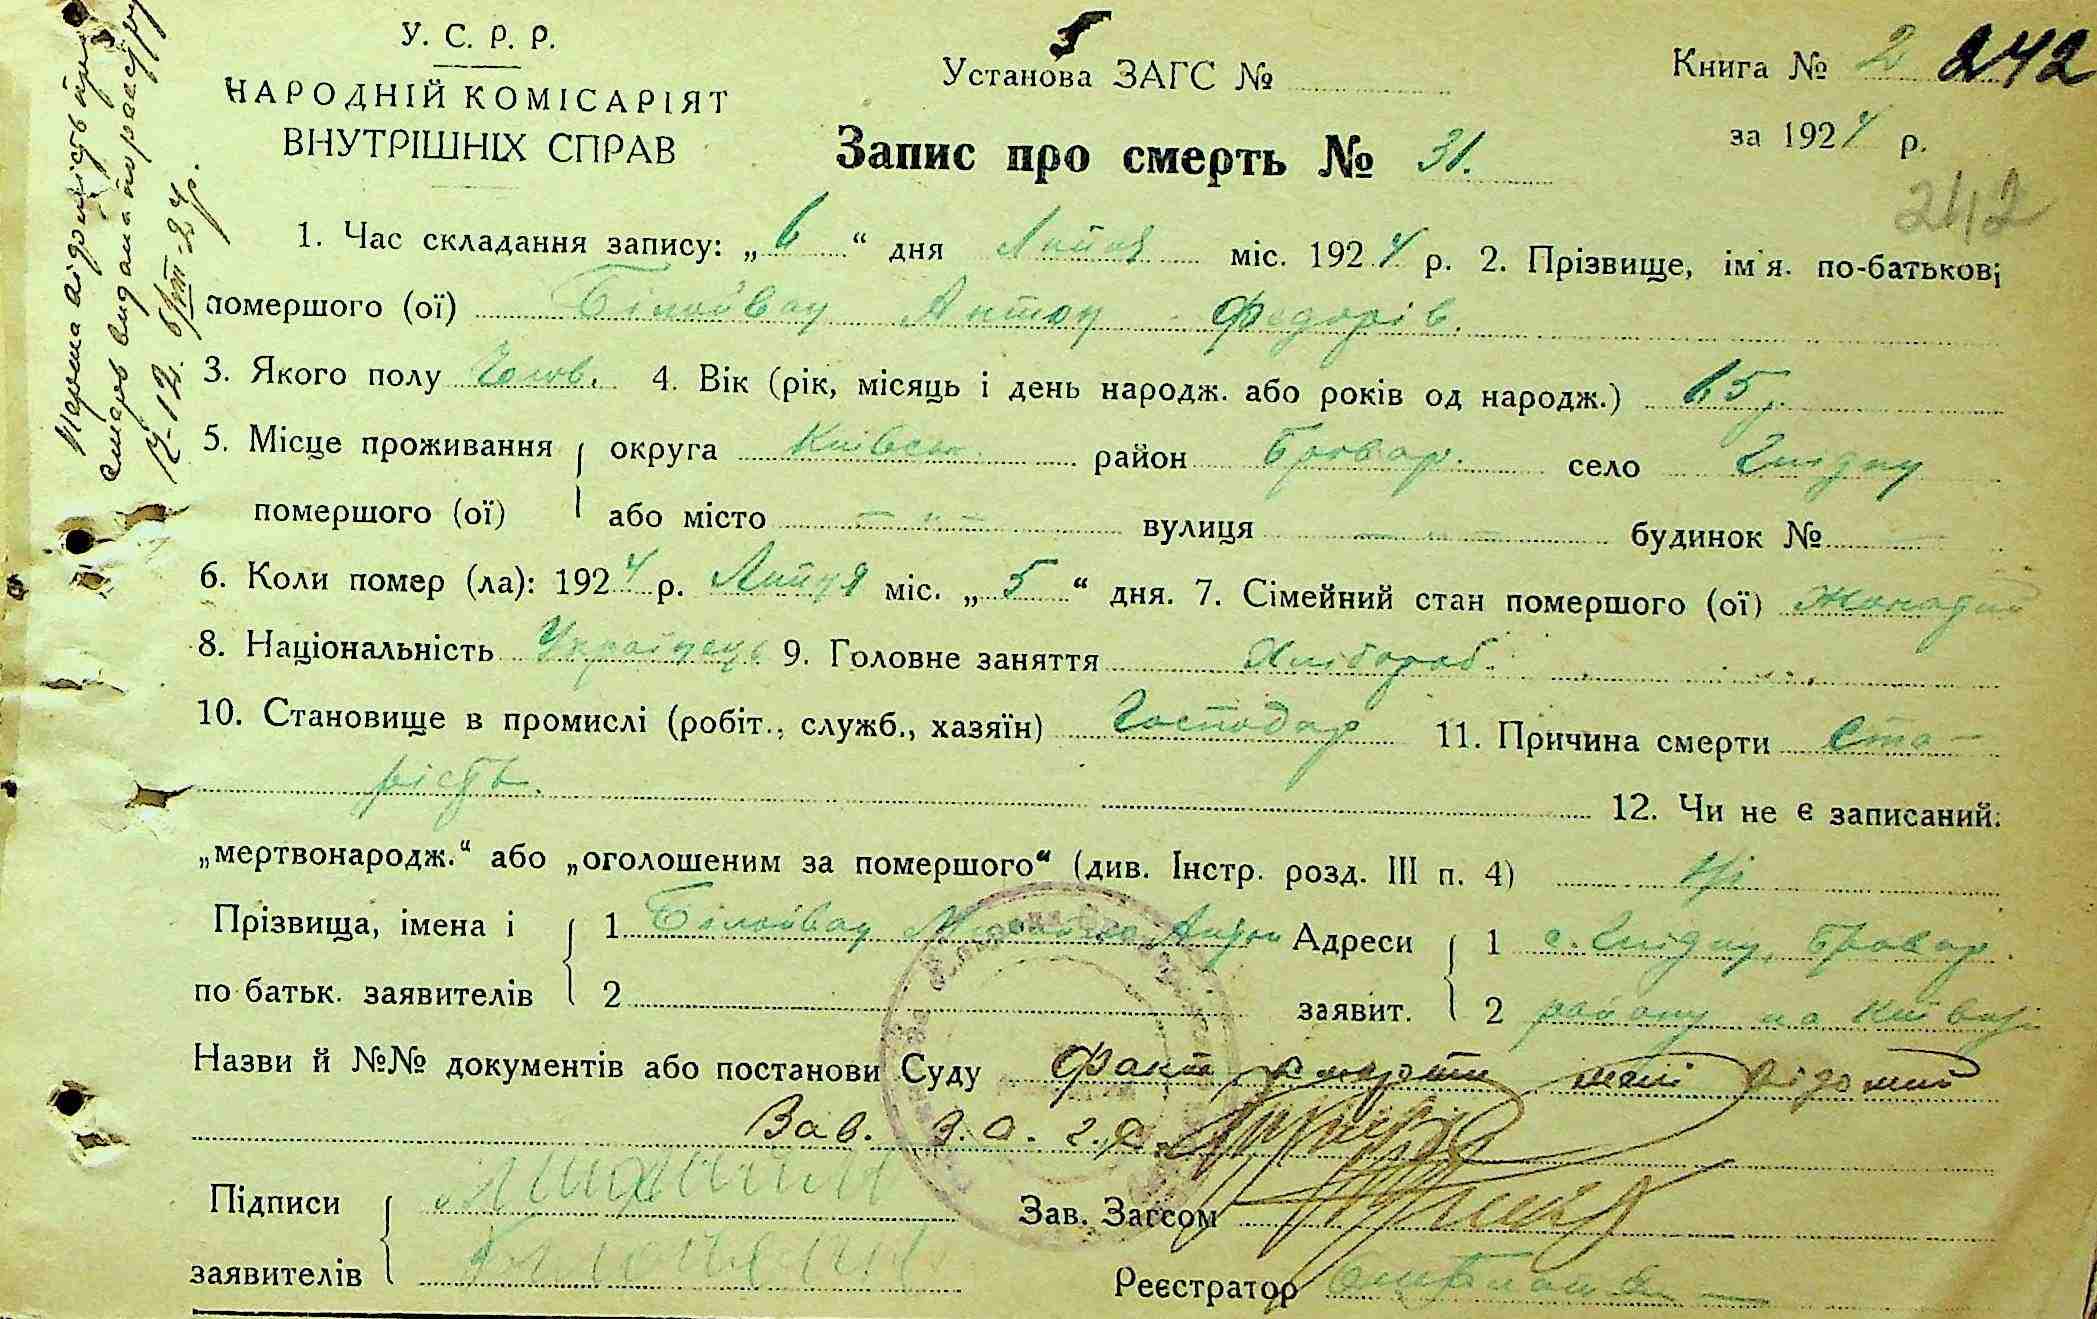 У. С. Р. Р.
НАРОДНІЙ КОМІСАРІЯТ
ВНУТРІШНІХ СПРАВ
Установа ЗАГС № 5
Книга № 2 242
за 1924 р.
Запис про смерть № 31.
242
1. Час складання запису: „6“ дня Липня міс. 1924 р. 2. Прізвище, ім'я. по-батькові
помершого (ої) Білойван Антон Федорів.
3. Якого полу Чолов. 4. Вік (рік, місяць і день народж. або років од народж.) 65 р.
5. Місце проживання округа Київськ. район Бровар. село Гнідин
помершого (ої) або місто — „ — вулиця — „ — будинок № —
6. Коли помер (ла): 1924 р. Липня міс. „5“ дня. 7. Сімейний стан помершого (ої) Жонатий
8. Національність Українець 9. Головне заняття Хлібороб.
10. Становище в промислі (робіт., служб., хазяїн) Господар 11. Причина смерти Ста-
рість. 12. Чи не є записаний
„мертвонародж.“ або „оголошеним за помершого“ (див. Інстр. розд. III п. 4) Ні
Прізвища, імена і 1 Білойван Антон Адреси 1 с. Гнідин, Бровар.
по батьк. заявителів 2 заявит. 2 району на Київщ.
Назви й №№ документів або постанови Суду Факт смерти мені відомий
Зав.
Підписи
заявителів
Зав. Загсом
Реєстратор